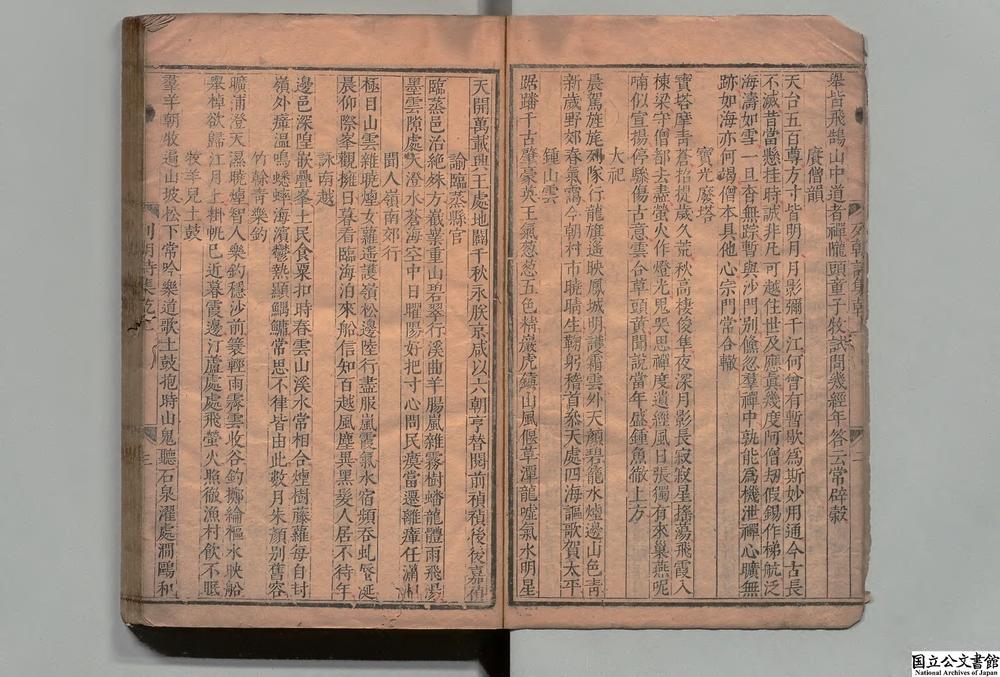 舉皆飛鵠山中道者禪龍頭童子牧試問幾經年答云常辟穀
賡僧韻
天台五百尊方寸皆明月月影彌千江何曾有暫歇為斯妙用通今古長
不滅昔當懸挂時誠非凡可越住世及應真幾度阿僧劫假錫作梯航泛
海濤如雪一旦杳無踪暫與沙門別儵忽羣禪中孰能為機泄禪心曠無
跡如海亦何竭僧本具他心宗門常合轍
寶光廢塔
寶塔摩青蒼招提歲久荒秋高棲俊隼夜深月影長寂寂星搖蕩飛霞入
棟梁守僧都去盡螢火作燈光鬼哭思禪度遺經風日張獨有來巢燕呢
喃似宣揚停驂傷古意雲合草頭黃聞說當年盛鍾魚徹上方
大祀
晨駕旌旄列隊行龍旂遙映鳳城明護霜雲外天顏碧籠水煙邊山色青
新歲野郊春氣靄今朝村市曉晴生鞠躬稽首忝天處四海謳歌賀太平
鍾山雲
踞蹯千古肇豪英王氣葱葱五色精巖虎鎮山風偃草潭龍噓氣水明星
天開萬載興王處地闢千秋永朕京咸以六朝亨替閱前禎禎後後嘉禎
諭臨蒸縣官
臨蒸邑治絕殊方巀嶪重山碧翠行溪曲羊腸嵐雜霧樹蟠龍體雨飛裳
墨雲隙處天澄水蒼海空中日曜陽好把寸心問民瘼當還離瘴任瀟湘
聞人嶺南郊行
極目山雲雜曉煙女蘿遙護嶺松邊陸行盡服嵐霞氣水宿頻吞虬蜃涎
晨仰際峯觀擁日暮看臨海泊來船信知百越風塵異黑髮人居不待年
詠南越
邊邑深隍嵌疊峯土民食粟扣時舂雲山溪水常相合煙樹藤蘿每自封
嶺外瘴溫鳴蟋蟀海濱鬱熱顯鰅鱅常思不律皆由此數月朱顏別舊容
竹榦青樂釣
曠浦澄天濕曉煙智人樂釣穩沙前簑輕雨霽雲收谷釣擲綸樞水映船
舉棹欲歸江月上掛帆已近暮霞邊汀蘆處處飛螢火照徹漁村飲不眠
牧羊兒土鼓
羣羊朝牧遍山坡松下常吟樂道歌土鼓抱時山鬼聽石泉濯處澗鷗和
国立公文書館
National Archives of Japan